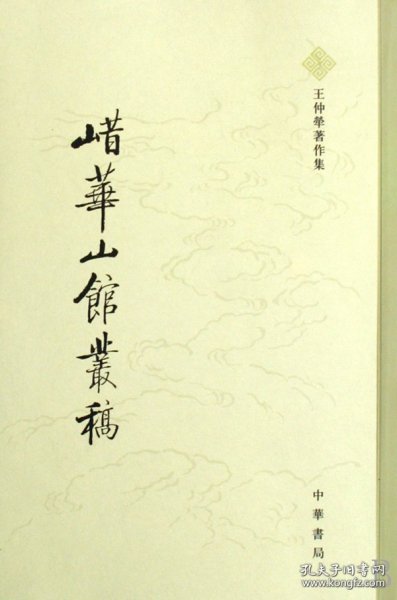 王仲犖著作集
㟙華山館叢稿
中華書局
孔夫子旧书网
www.kongfz.com